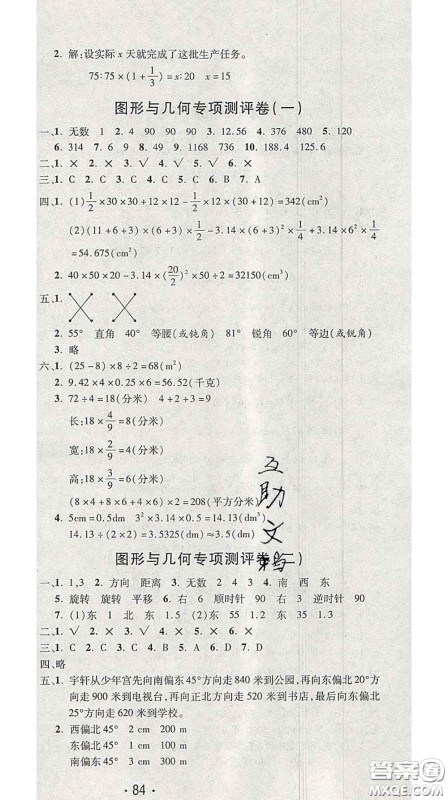 2. 解:设实际 x 天就完成了这批生产任务。
75:75×(1+1/3)=x:20  x=15
图形与几何专项测评卷(一)
一、1. 无数 1 2. 4 90 90 90 3. 12.56 4. 376 480 5. 120
6. 314 7. 6 8. 49 9. 1168 736 10. 188.4 125.6
二、1. × 2. × 3. √ 4. √ 5. × 6. ×
三、1. C 2. A 3. C 4. C 5. C 6. B 7. A
四、1. (1) 1/2×30×30+12×12-1/2×12×(30+12)=342(cm²)
(2) (11+6+3)×(6+3)×1/2-3.14×(6+3)²×1/4+3.14×6²×1/4
=54.675(cm²)
2. 40×50×20-3.14×(20/2)²×50÷2=32150(cm²)
五、1.
2. 55° 直角 40° 等腰(或钝角) 81° 锐角 60° 等边(或锐角)
3. 略
六、1. (25-8)×8÷2=68(m²)
2. 9.42×4×0.25×6=56.52(千克)
3. 72÷4=18(分米) 4+2+3=9
长:18×4/9=8(分米)
宽:18×2/9=4(分米)
高:18×3/9=6(分米)
(8×4+8×6+4×6)×2=208(平方分米)
4. 5cm=0.5dm 3²×3.14×0.5=14.13(dm³)
14.13÷(2×2)=3.5325(dm)≈3.5(dm)
互助文
图形与几何专项测评卷(二)
一、1. 1,3 2. 方向 距离 3. 无数 4. 2 4. 南 西 东
5. 旋转 旋转 平移 6. 右 顺时针 90 右 3 逆时针 90
7. (1)东 1 (2)东 55 1.5 (3)东 35 1.2
二、1. √ 2. × 3. √ 4. √ 5. ×
三、1. B 2. A 3. A 4. D 5. C
四、略
五、1. 宇轩从少年宫先向南偏东45°方向走840米到公园,再向东偏北20°方
向走900米到电视台,再向正北方向走520米到书店,最后向东偏北
25°方向走620米到学校。
2. 西偏北 45° 2 cm 200 m
东偏北 45° 1 cm 100 m
南偏东 45° 3 cm 300 m
· 84 ·
答案圈
MXQE.COM